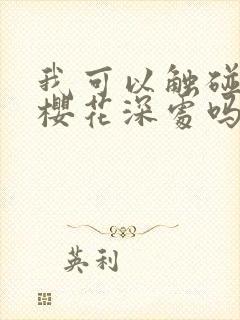 我可以触碰
樱花深处吗
英利